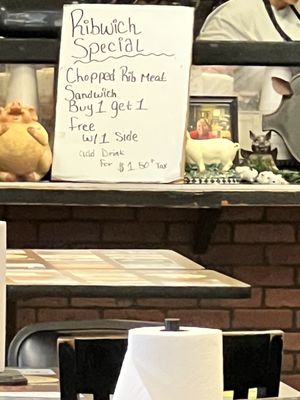 Ribwich
Special
Chopped Rib Meat
Sandwich
Buy 1 get 1
Free
w/ 1 Side
add Drink
For $1.50 + Tax